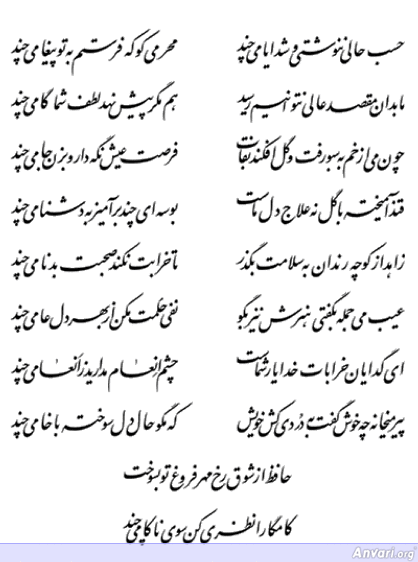 حسب حالی ننوشتی و شد ایامی چند محرمی کو که فرستم به تو پیغامی چند
ما بدان مقصد عالی نتوانیم رسید هم مگر پیش نهد لطف شما گامی چند
چون می از خم به سبو رفت و گل افکند نقاب فرصت عیش نگه دار و بزن جامی چند
قند آمیخته با گل نه علاج دل ماست بوسه‌ای چند برآمیز به دشنامی چند
زاهد از کوچه رندان به سلامت بگذر تا خرابت نکند صحبت بدنامی چند
عیب می جمله بگفتی هنرش نیز بگو نفی حکمت مکن از بهر دل عامی چند
ای گدایان خرابات خدا یار شماست چشم انعام مدارید ز انعامی چند
پیر میخانه چه خوش گفت به دردی کش خویش که مگو حال دل سوخته با خامی چند
حافظ از شوق رخ مهر فروغ تو بسوخت
کامگارا نظری کن سوی ناکامی چند
Anvari.org